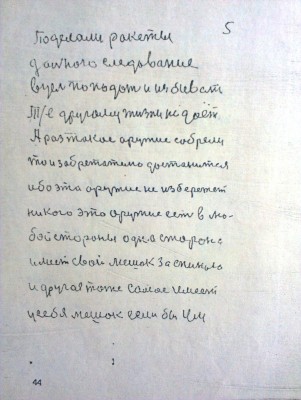 5
Поделали ракеты
дочного следование
вцел поподот и избивать
Т/е другому жизни не даёт.
А раз такое оружие собрели
то изобретателю достанится
ибо эта оружие не избережет
никого это оружие есть в лю-
бой стороны одна сторона
имеет свой мешок за спиною
и другая тоже самое имеет
у себя мешок если бы им
44